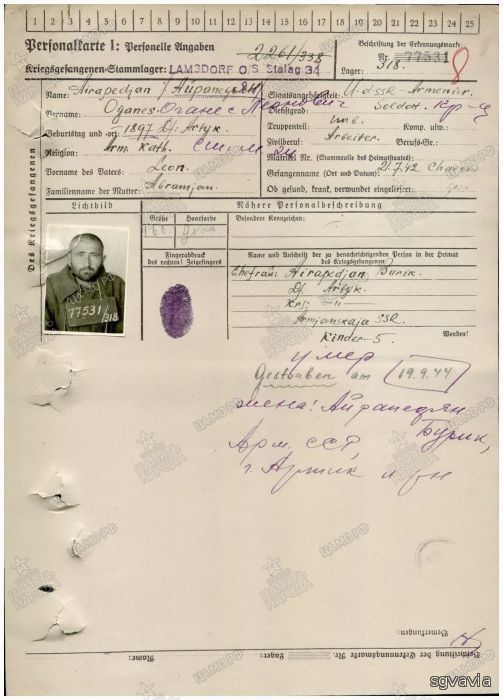 1 2 3 4 5 6 7 8 9 10 11 12 13 14 15 16 17 18 19 20 21 22 23 24 25
Personalkarte I: Personelle Angaben
2261/338
Beschriftung der Erkennungsmarke
Nr. 77531
Kriegsgefangenen-Stammlager: LAMSDORF O/S Stalag 34
Lager: 318.
8
Des Kriegsgefangenen
Name: Airapedjan / Айрапедян
Staatsangehörigkeit: U.d.SSR Armenier.
Vorname: Oganes Оганес Леонович
Dienstgrad: Soldat Кр-ц
Truppenteil: Komp. usw.:
Geburtstag und -ort: 1897 Df. Artyk
Zivilberuf: Arbeiter Berufs-Gr.:
Religion: Arm. Kath.
Matrikel Nr. (Stammrolle des Heimatstaates):
Vorname des Vaters: Leon
Gefangennahme (Ort und Datum): 21.7.42
Familienname der Mutter: Abramjan
Ob gesund, krank, verwundet eingeliefert:
Lichtbild
Nähere Personalbeschreibung
Größe Haarfarbe Besondere Kennzeichen:
160 Grau
Fingerabdruck
des rechten! Zeigefingers
Name und Anschrift der zu benachrichtigenden Person in der Heimat
des Kriegsgefangenen
Ehefrau: Airapedjan Burik
Df. Artyk
Krs: "
Armjanskaja SSR
Kinder-5.
Wenden!
77531
318
умер
Gestorben am 19.9.44
жена: Айрапедян
Бурик,
Арм. ССР,
г. Артик
Bemerkungen:
Beschriftung der Erkennungsmarke Nr. Lager: Name:
ЦАМО РФ
ПАМЯТЬ НАРОДА
sgvavia